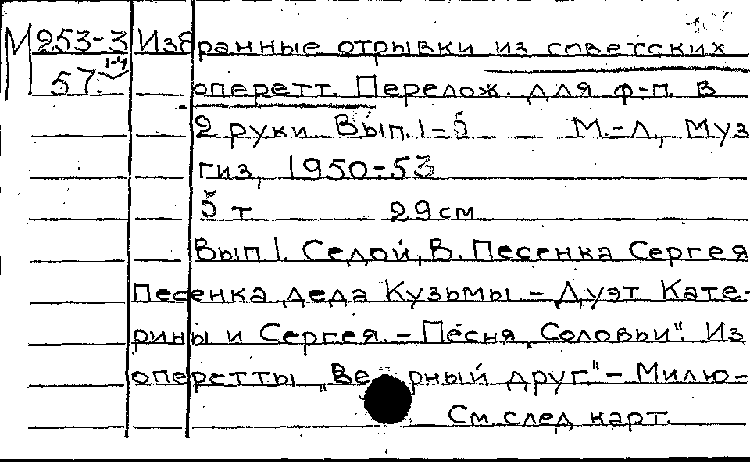 М 253-3 Избранные отрывки из советских
57 1-4 оперетт. Перелож. для ф-п. в
2 руки. Вып. 1-5 М.-Л., Муз
гиз, 1950-53
5 т 29 см
Вып 1. Седой, В. Песенка Сергея
Песенка деда Кузьмы - Дуэт Кате-
рины и Сергея. - Песня „Соловьи“. Из
оперетты „Верный друг.“ - Милю-
См. след. карт.